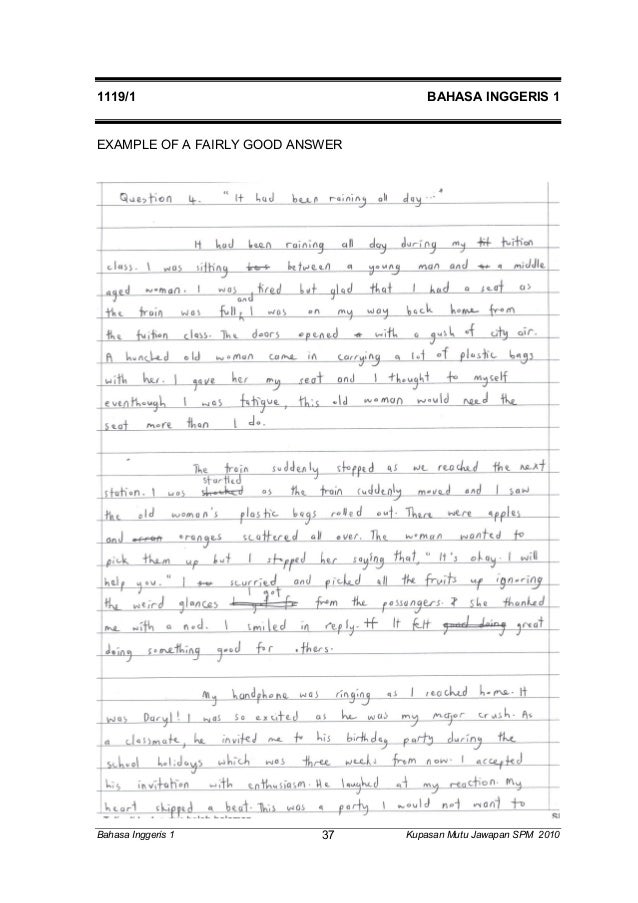 1119/1 BAHASA INGGERIS 1
EXAMPLE OF A FAIRLY GOOD ANSWER
Question 4. "It had been raining all day..."
It had been raining all day during my tuition
class. I was sitting between a young man and a middle
aged woman. I was tired but glad that I had a seat as
the train was full, and I was on my way back home from
the tuition class. The doors opened with a gush of city air.
A hunched old woman came in carrying a lot of plastic bags
with her. I gave her my seat and I thought to myself
eventhough I was fatigue, this old woman would need the
seat more than I do.
The train suddenly stopped as we reached the next
station. I was startled as the train suddenly moved and I saw
the old woman's plastic bags rolled out. There were apples
and oranges scattered all over. The woman wanted to
pick them up but I stopped her saying that, "It's okay. I will
help you." I scurried and picked all the fruits up ignoring
the weird glances I got from the passangers. She thanked
me with a nod. I smiled in reply. It felt great
doing something good for others.
My handphone was ringing as I reached home. It
was Daryl! I was so excited as he was my major crush. As
a classmate, he invited me to his birthday party during the
school holidays which was three weeks from now. I accepted
his invitation with enthusiasm. He laughed at my reaction. My
heart skipped a beat. This was a party I would not want to
Bahasa Inggeris 1 37 Kupasan Mutu Jawapan SPM 2010